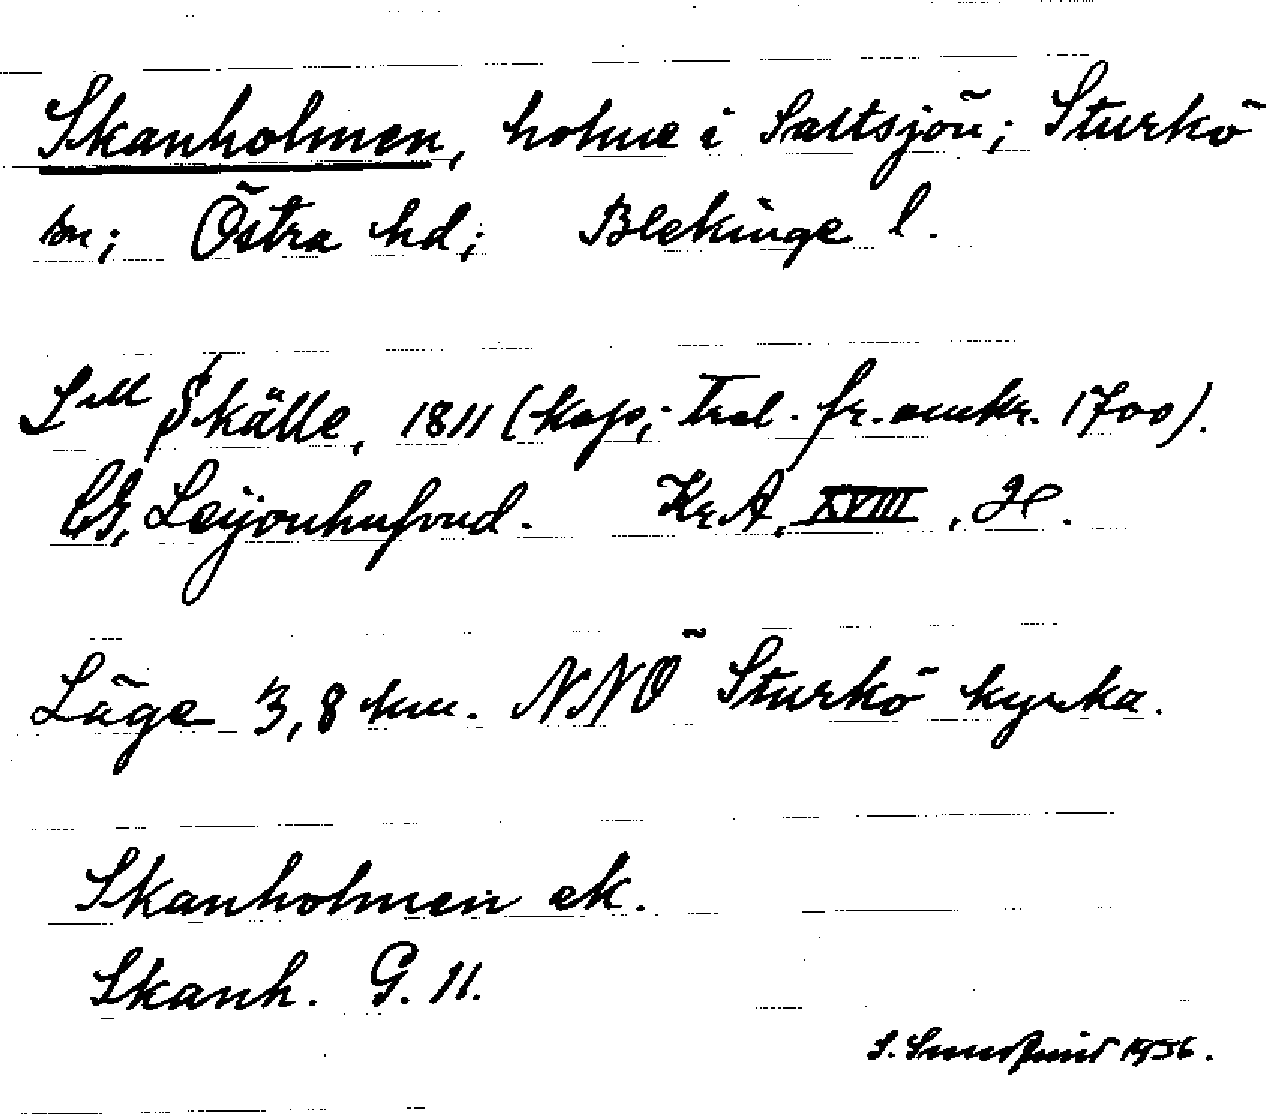 Skanholmen, holme i Saltsjön; Sturkö
sn; Östra hd; Blekinge l.
Lill Skälle, 1811 (kop; trol. fr. omkr. 1700).
CG, Leijonhufvud. Kr. A, XVIII, H.
Läge 3,8 km. NNÖ Sturkö kyrka.
Skanholmen ek.
Skanh. G. 11.
S. 1936.